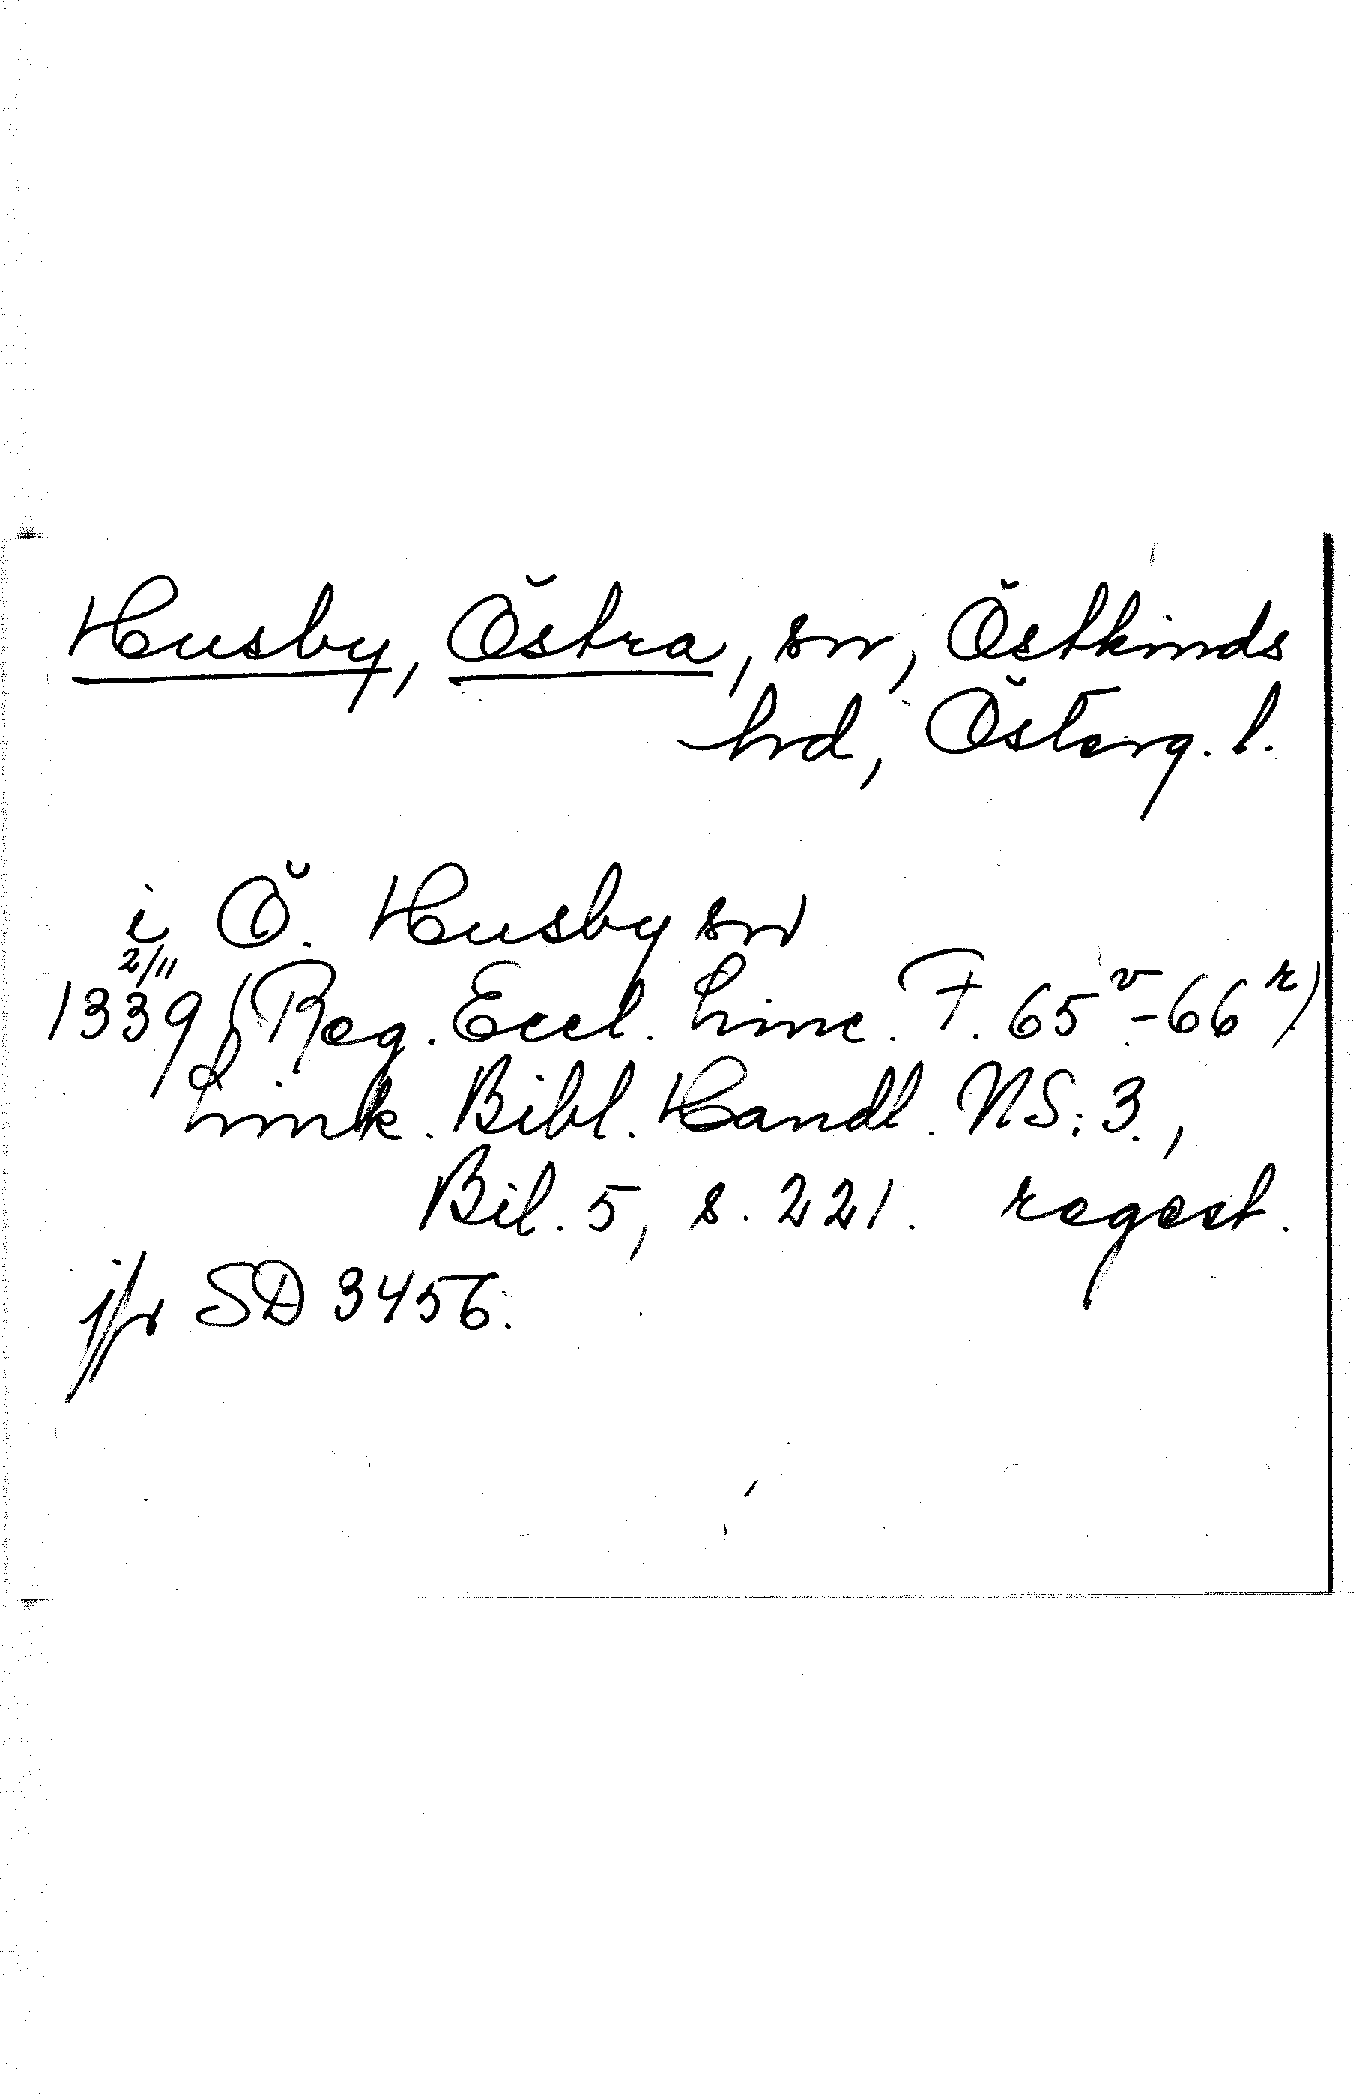 Husby, Östra, sn, Östkinds
hd, Österg. l.
i Ö. Husby sn
2/11
1339 (Reg. Eccl. Linc. F. 65v-66r)
Link. Bibl. Handl. NS: 3.,
Bil. 5, s. 221. regest.
jfr SD 3456.